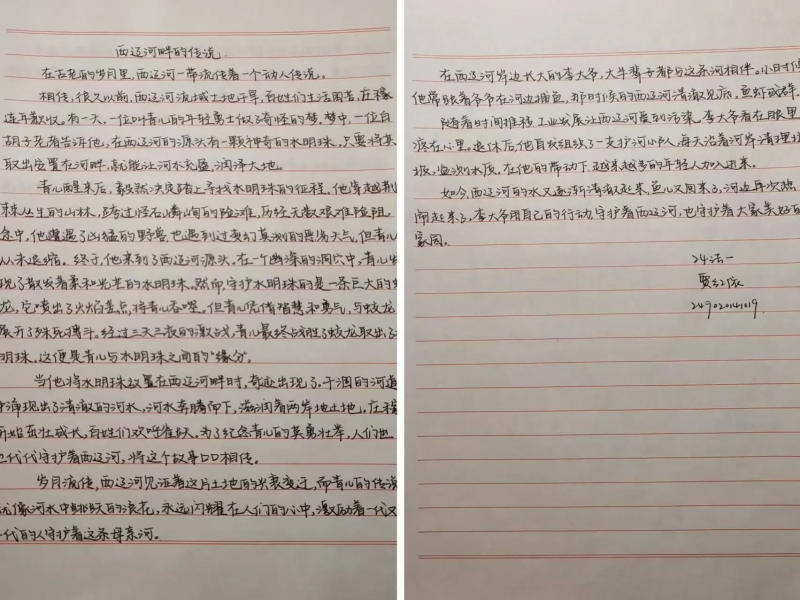 西辽河畔的传说
在古老的岁月里，西辽河一带流传着一个动人传说。
相传，很久以前，西辽河流域土地干旱，百姓们生活困苦，庄稼
连年歉收。有一天，一位叫青儿的年轻勇士做了奇怪的梦，梦中，一位白
胡子老者告诉他，在西辽河的源头有一颗神奇的水明珠，只要将其
取出安置在河畔，就能让河水充盈，润泽大地。
青儿醒来后，毅然决定踏上寻找水明珠的征程，他穿越荆
棘丛生的山林，踏过怪石嶙峋的险滩，历经无数艰难险阻，
途中，他遭遇了凶猛的野兽，也遇到过变幻莫测的恶劣天气，但青儿
从未退缩。终于，他来到了西辽河源头。在一个幽深的洞穴中，青儿发
现了散发着柔和光芒的水明珠。然而，守护水明珠的是一条巨大的蛟
龙，它喷出了火焰差点将青儿吞噬。但青儿凭借智慧和勇气，与蛟龙
展开了殊死搏斗。经过三天三夜的激战，青儿最终战胜了蛟龙取出了水
明珠，这便是青儿与水明珠之间的“缘分”。
当他将水明珠放置在西辽河畔时，奇迹出现了。干涸的河道
中涌现出了清澈的河水，河水奔腾而下，滋润着两岸地土地，庄稼
开始茁壮成长，百姓们欢呼雀跃。为了纪念青儿的英勇壮举，人们世
世代代守护着西辽河，将这个故事口口相传。
岁月流传，西辽河见证着这片土地的兴衰变迁，而青儿的传说
就像河水中跳跃的浪花，永远闪耀在人们的心中，激励着一代又
一代的人守护着这条母亲河。
在西辽河岸边长大的李大爷，大半辈子都与这条河相伴。小时候
他常跟着爷爷在河边捕鱼，那时候的西辽河清澈见底，鱼虾成群。
随着时间推移，工业发展让西辽河受到污染，李大爷看在眼里
疼在心里。退休后，他自发组织了一支护河小队，每天沿着河岸清理垃
圾，监测水质。在他的带动下，越来越多的年轻人加入进来。
如今，西辽河的水又逐渐清澈起来，鱼儿又回来了，河边再次热
闹起来了，李大爷用自己的行动，守护着西辽河，也守护着大家美好的
家园。
24法一
249020141019